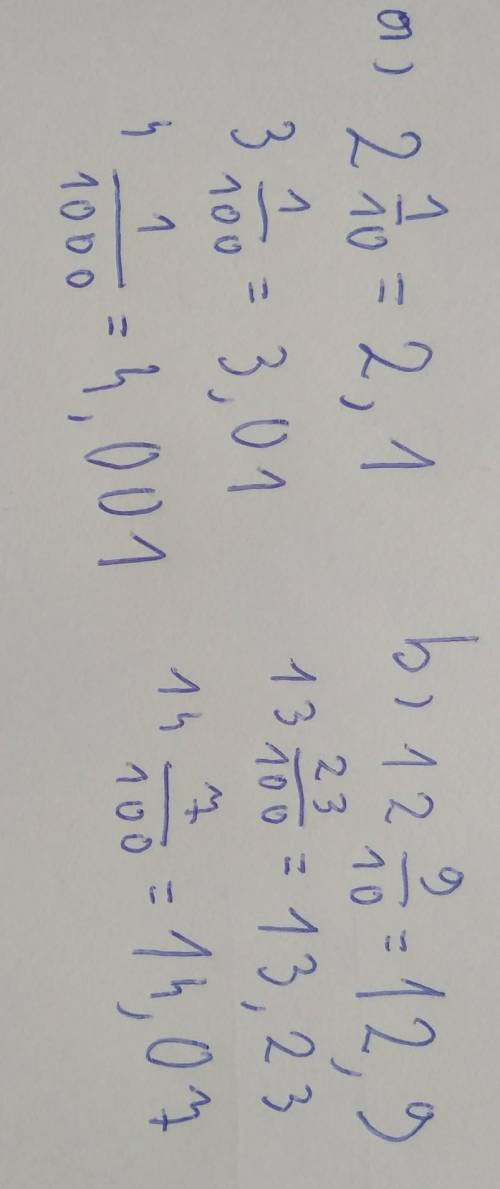 a) 2 1/10 = 2,1
3 1/100 = 3,01
4 1/1000 = 4,001
b) 12 9/10 = 12,9
13 23/100 = 13,23
14 7/100 = 14,07